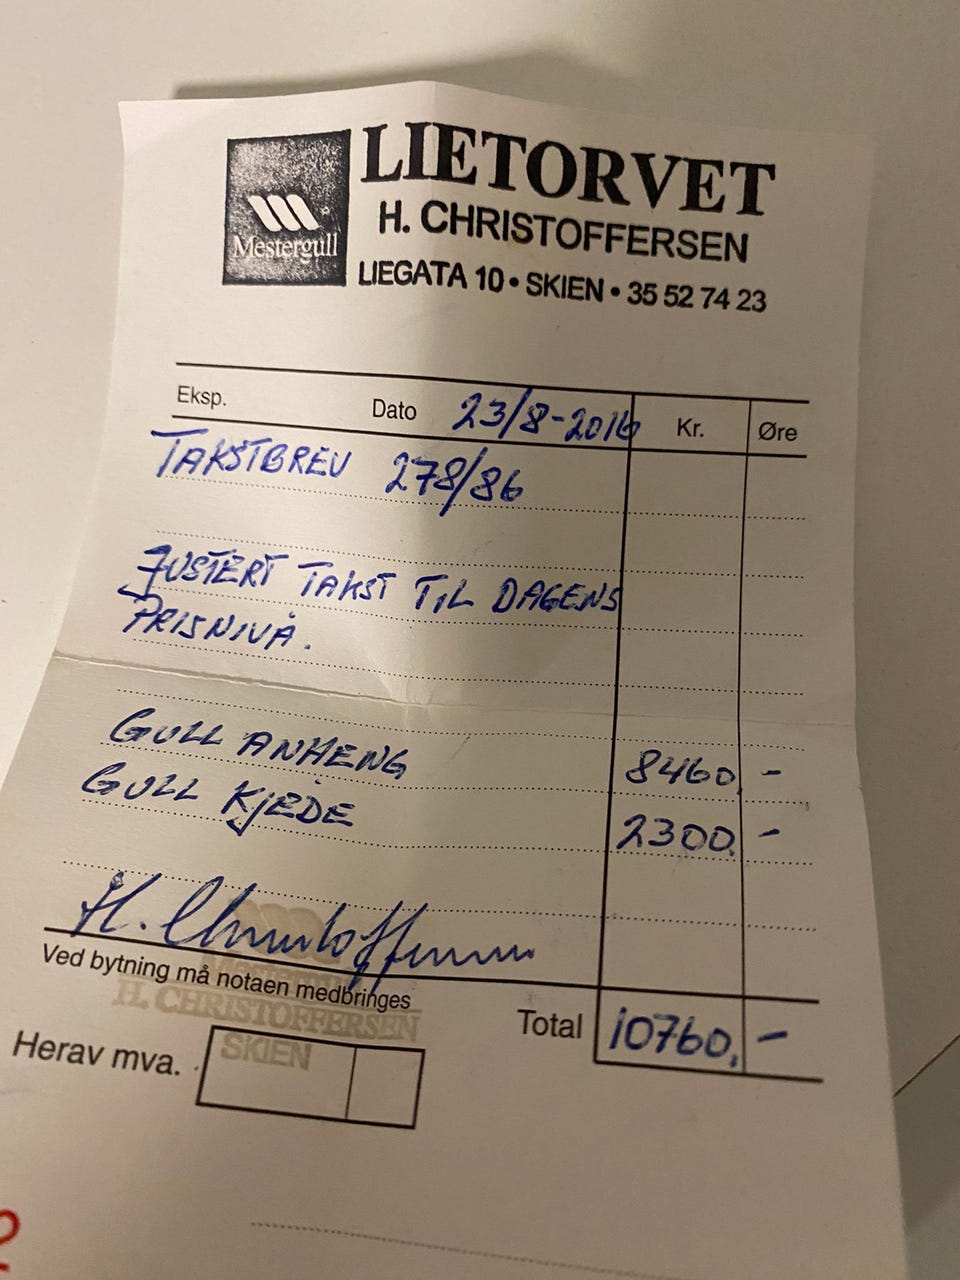 Mestergull
LIETORVET
H. CHRISTOFFERSEN
LIEGATA 10 • SKIEN • 35 52 74 23
Eksp. Dato 23/8-2016 Kr. Øre
TAKSTBREV 278/86
JUSTERT TAKST TIL DAGENS
PRISNIVÅ.
GULL ANHENG 8460,-
GULL KJEDE 2300,-
H. Christoffersen
Ved bytning må notaen medbringes
H. CHRISTOFFERSEN
SKIEN
Total 10760,-
Herav mva.